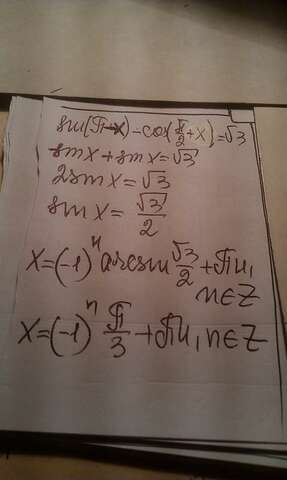 sin(π-x)-cos(π/2+x)=√3
sin x+sin x=√3
2sin x=√3
sin x=√3/2
x=(-1)ⁿ arcsin √3/2+πn,
n∈Z
x=(-1)ⁿ π/3+πn, n∈Z